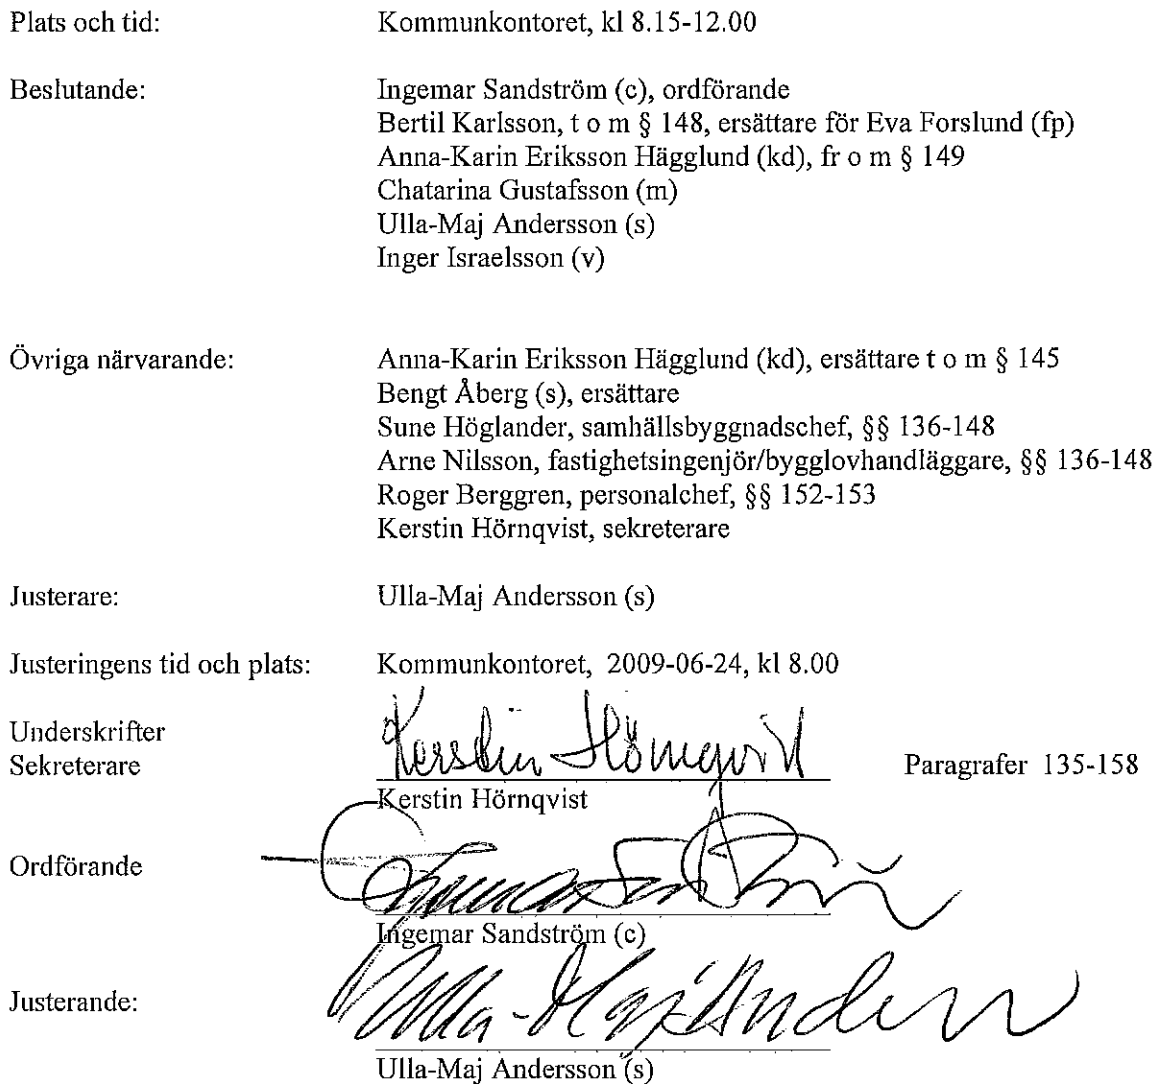 Plats och tid: Kommunkontoret, kl 8.15-12.00
Beslutande: Ingemar Sandström (c), ordförande
Bertil Karlsson, t o m § 148, ersättare för Eva Forslund (fp)
Anna-Karin Eriksson Hägglund (kd), fr o m § 149
Chatarina Gustafsson (m)
Ulla-Maj Andersson (s)
Inger Israelsson (v)
Övriga närvarande: Anna-Karin Eriksson Hägglund (kd), ersättare t o m § 145
Bengt Åberg (s), ersättare
Sune Höglander, samhällsbyggnadschef, §§ 136-148
Arne Nilsson, fastighetsingenjör/bygglovhandläggare, §§ 136-148
Roger Berggren, personalchef, §§ 152-153
Kerstin Hörnqvist, sekreterare
Justerare: Ulla-Maj Andersson (s)
Justeringens tid och plats: Kommunkontoret, 2009-06-24, kl 8.00
Underskrifter
Sekreterare Kerstin Hörnqvist Paragrafer 135-158
Kerstin Hörnqvist
Ordförande
Ingemar Sandström (c)
Justerande: Ulla-Maj Andersson
Ulla-Maj Andersson (s)